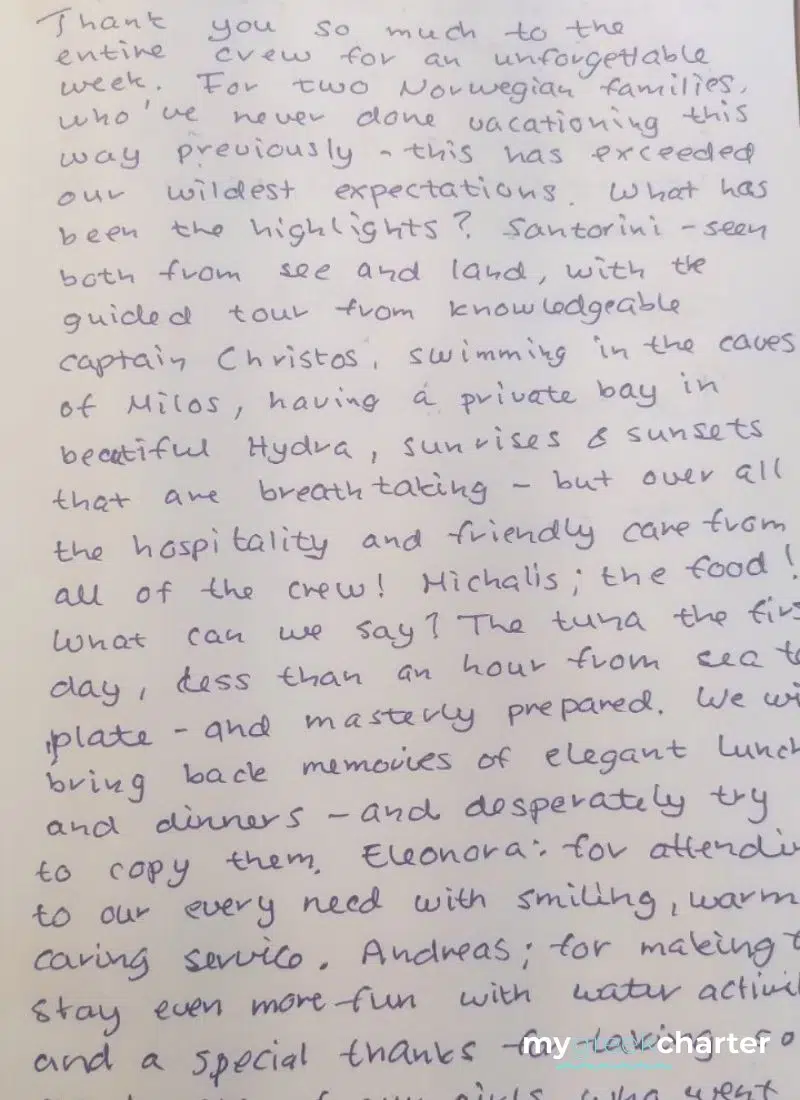 Thank you so much to the
entire crew for an unforgettable
week. For two Norwegian families,
who've never done vacationing this
way previously - this has exceeded
our wildest expectations. What has
been the highlights? Santorini - seen
both from see and land, with the
guided tour from knowledgeable
captain Christos, swimming in the caves
of Milos, having a private bay in
beautiful Hydra, sunrises & sunsets
that are breathtaking - but over all
the hospitality and friendly care from
all of the crew! Michalis; the food!
What can we say? The tuna the firs
day, less than an hour from sea to
plate - and masterly prepared. We wi
bring back memories of elegant lunch
and dinners - and desperately try
to copy them. Eleonora: for attendin
to our every need with smiling, warm
caring service. Andreas; for making t
stay even more fun with water activi
and a special thanks for taking so
girls who went
my charter